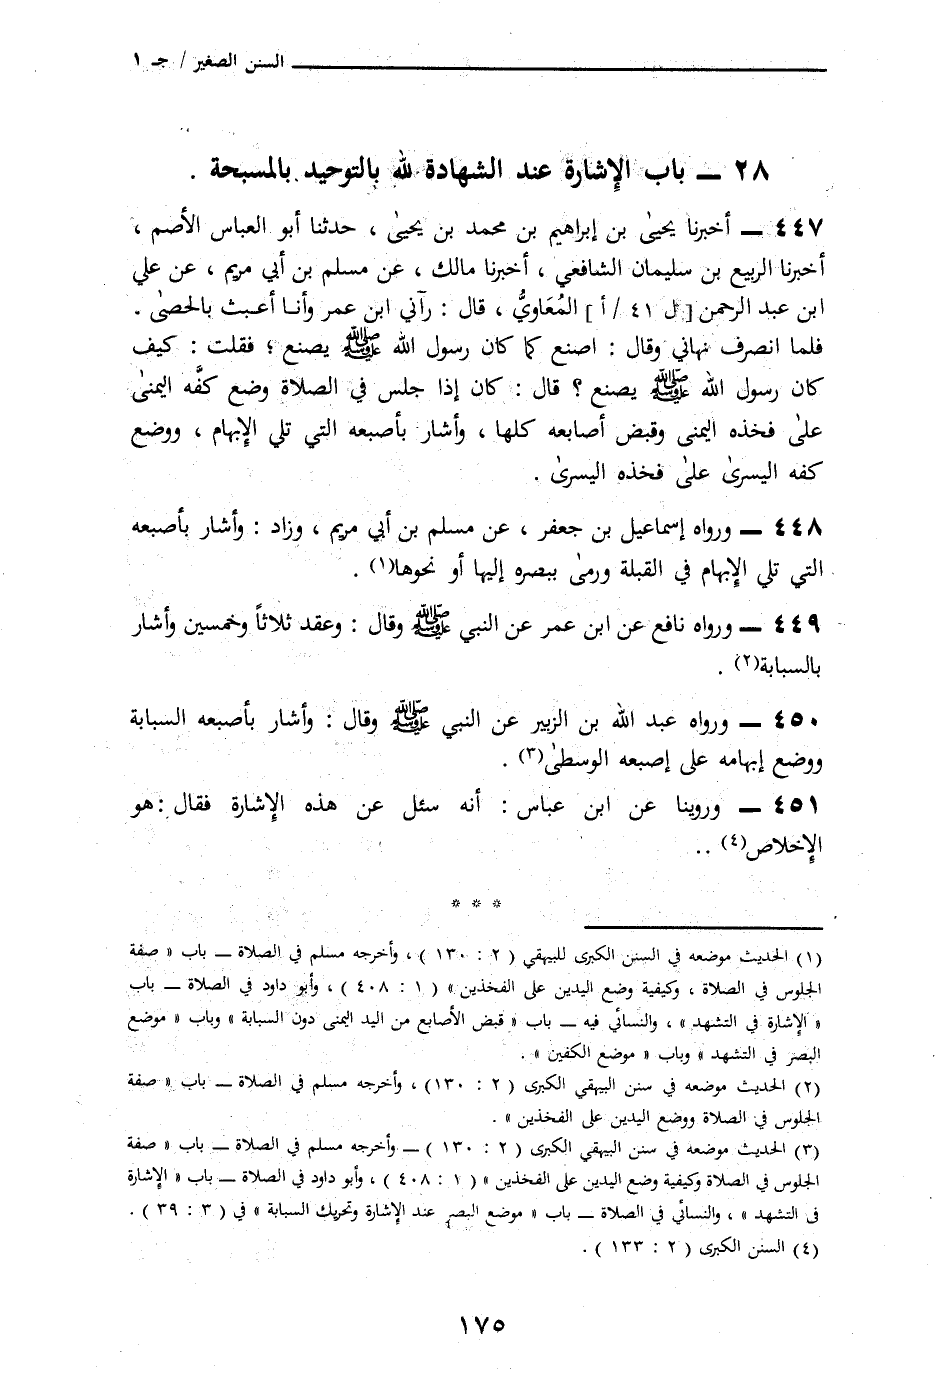 السنن الصغير / جـ ١
٢٨ ــ باب الإشارة عند الشهادة لله بالتوحيد بالمسبحة .
٤٤٧ ــ أخبرنا يحيىٰ بن إبراهيم بن محمد بن يحيىٰ ، حدثنا أبو العباس الأصم ،
أخبرنا الربيع بن سليمان الشافعي ، أخبرنا مالك ، عن مسلم بن أبي مريم ، عن علي
ابن عبد الرحمن [ ل ٤١ / أ ] المُعَاويُّ ، قال : رآني ابن عمر وأنا أعبث بالحصىٰ .
فلما انصرف نهاني وقال : اصنع كما كان رسول الله ﷺ يصنع ؛ فقلت : كيف
كان رسول الله ﷺ يصنع ؟ قال : كان إذا جلس في الصلاة وضع كفَّه اليمنىٰ
علىٰ فخذه اليمنى وقبض أصابعه كلها ، وأشار بأصبعه التي تلي الإبهام ، ووضع
كفه اليسرىٰ علىٰ فخذه اليسرىٰ .
٤٤٨ ــ ورواه إسماعيل بن جعفر ، عن مسلم بن أبي مريم ، وزاد : وأشار بأصبعه
التي تلي الإبهام في القبلة ورمىٰ ببصره إليها أو نحوها(١) .
٤٤٩ ــ ورواه نافع عن ابن عمر عن النبي ﷺ وقال : وعقد ثلاثاً وخمسين وأشار
بالسبابة(٢) .
٤٥٠ ــ ورواه عبد الله بن الزبير عن النبي ﷺ وقال : وأشار بأصبعه السبابة
ووضع إبهامه على إصبعه الوسطىٰ(٣) .
٤٥١ ــ وروينا عن ابن عباس : أنه سئل عن هذه الإشارة فقال : هو
الإخلاص(٤) ..
* * *
(١) الحديث موضعه في السنن الكبرى للبيهقي ( ٢ : ١٣٠ ) ، وأخرجه مسلم في الصلاة ــ باب « صفة
الجلوس في الصلاة ، وكيفية وضع اليدين على الفخذين » ( ١ : ٤٠٨ ) ، وأبو داود في الصلاة ــ باب
« الإشارة في التشهد » ، والنسائي فيه ــ باب « قبض الأصابع من اليد اليمنى دون السبابة » وباب « موضع
البصر في التشهد » وباب « موضع الكفين » .
(٢) الحديث موضعه في سنن البيهقي الكبرى ( ٢ : ١٣٠) ، وأخرجه مسلم في الصلاة ــ باب « صفة
الجلوس في الصلاة ووضع اليدين على الفخذين » .
(٣) الحديث موضعه في سنن البيهقي الكبرى ( ٢ : ١٣٠ ) ــ وأخرجه مسلم في الصلاة ــ باب « صفة
الجلوس في الصلاة وكيفية وضع اليدين على الفخذين » ( ١ : ٤٠٨ ) ، وأبو داود في الصلاة ــ باب « الإشارة
في التشهد » ، والنسائي في الصلاة ــ باب « موضع البصر عند الإشارة وتحريك السبابة » في ( ٣ : ٣٩ ) .
(٤) السنن الكبرى ( ٢ : ١٣٣ ) .
١٧٥